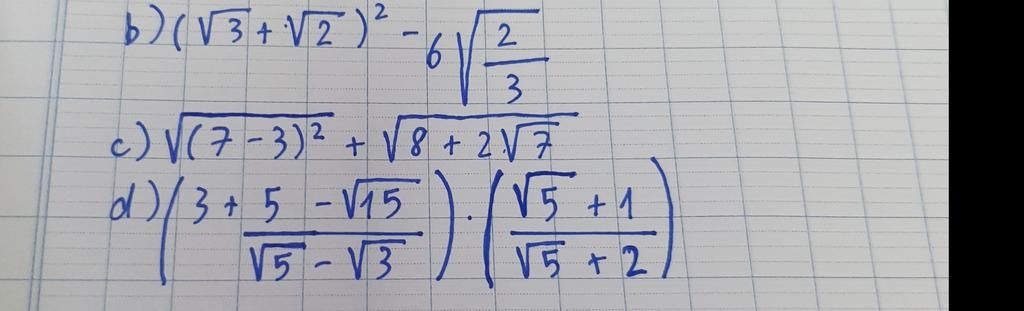 b) (√3 + √2)² - 6√(2/3)
c) √((7 - 3)²) + √(8 + 2√7)
d) (3 + (5 - √15)/(√5 - √3)) · ((√5 + 1)/(√5 + 2))